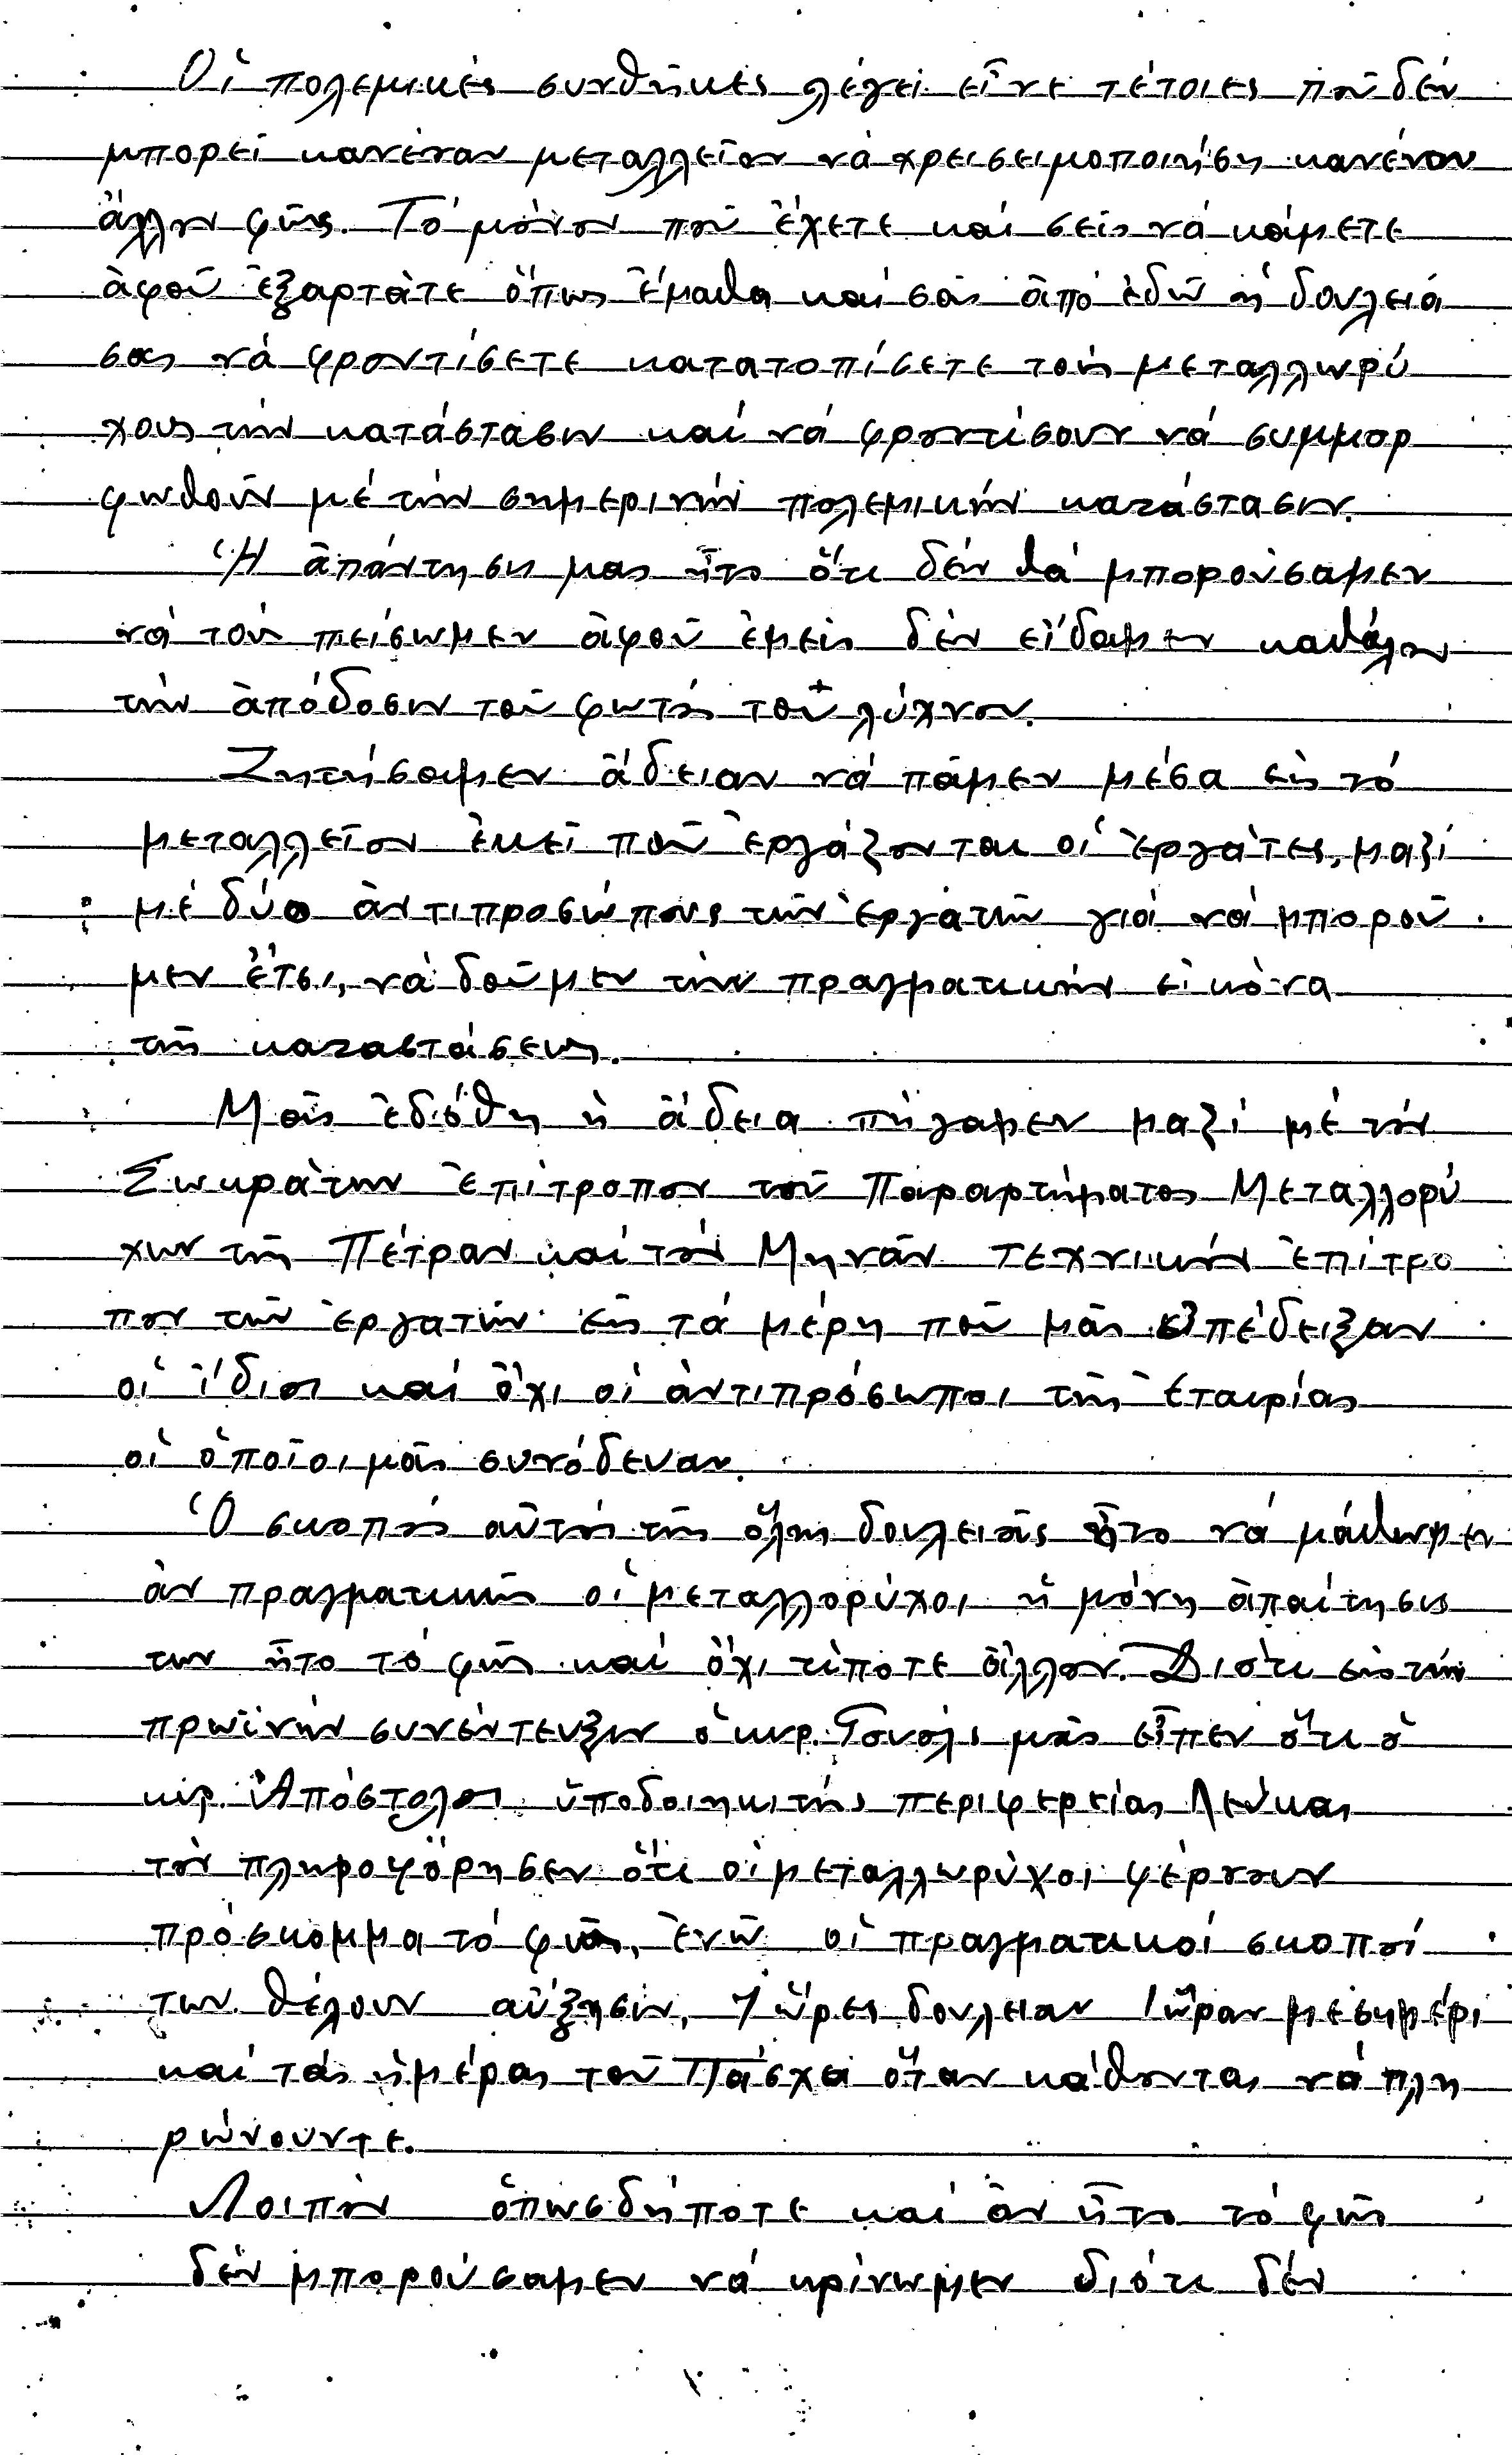 Οἱ πολεμικές συνθῆκες λέγει εἶνε τέτοιες ποῦ δέν
μπορεῖ κανέναν μεταλλεῖον νὰ χρεισειμοποιήση κανένον
ἄλλον φῶς. Τό μόνον ποῦ ἔχετε καί σεῖς νά κάμετε
ἀφοῦ ἐξαρτᾶτε ὅπως ἔμαθα καί σᾶς ἀπό ἐδῶ ἡ δουλειά
σας νά φροντίσετε κατατοπίσετε τούς μεταλλωρύ
χους τήν κατάστασιν καί νά φροντίσουν νά συμμορ
φωθοῦν μέ τήν σημερινήν πολεμικήν κατάστασιν.
Ἡ ἀπάντησι μας ἦτο ὅτι δέν θά μπορούσαμεν
νά τούς πείσωμεν ἀφοῦ ἐμεῖς δέν εἴδαμεν καθόλου
τήν ἀπόδοσιν τοῦ φωτός τοῦ λύχνου.
Ζητήσαμεν ἄδειαν νά πᾶμεν μέσα εἰς τό
μεταλλεῖον ἐκεῖ ποῦ ἐργάζονται οἱ ἐργάτες, μαζί
μέ δύο ἀντιπροσώπους τῶν ἐργατῶν γιά νά μποροῦ
μεν ἔτσι, νά δοῦμεν τήν πραγματικήν εἰκόνα
τῆς καταστάσεως.
Μᾶς ἐδόθη ἡ ἄδεια πήγαμεν μαζί μέ τόν
Σωκράτην ἐπίτροπον τοῦ Παραρτήματος Μεταλλορύ
χων τῆς Πέτραν καί τόν Μηνᾶν τεχνικόν ἐπίτρο
πον τῶν ἐργατῶν εἰς τά μέρη ποῦ μᾶς ὑπέδειξαν
οἱ ἴδιοι καί ὄχι οἱ ἀντιπρόσωποι τῆς ἑταιρίας
οἱ ὁποῖοι μᾶς συνόδευαν.
Ὁ σκοπός αὐτός τῆς ὅλης δουλειᾶς ἦτο νά μάθωμεν
ἀν πραγματικῶς οἱ μεταλλορύχοι ἡ μόνη ἀπαίτησις
των ἦτο τό φῶς καί ὄχι τίποτε ἄλλον. Διότι εἰς τήν
πρωϊνήν συνέντευξιν ὁ κυρ. Γουόλι μᾶς εἶπεν ὅτι ὁ
κυρ. Ἀπόστολοι ὑποδοιηκιτής περιφερείας Λεύκας
τόν πληροφόρησεν ὅτι οἱ μεταλλωρύχοι φέρνουν
πρόσκομμα τό φῶς, ἐνῶ οἱ πραγματικοί σκοποί
των θέλουν αὔξησιν, 7 ὥρες δουλειαν 1 ὥραν μεσημέρι
καί τάς ἡμέρας τοῦ Πάσχα ὅταν κάθονται νά πλη
ρώνουντε.
Λοιπόν ὁπωσδήποτε καί ἄν ἦτο τό φῶς
δέν μπορούσαμεν νά κρίνωμεν διότι δέν